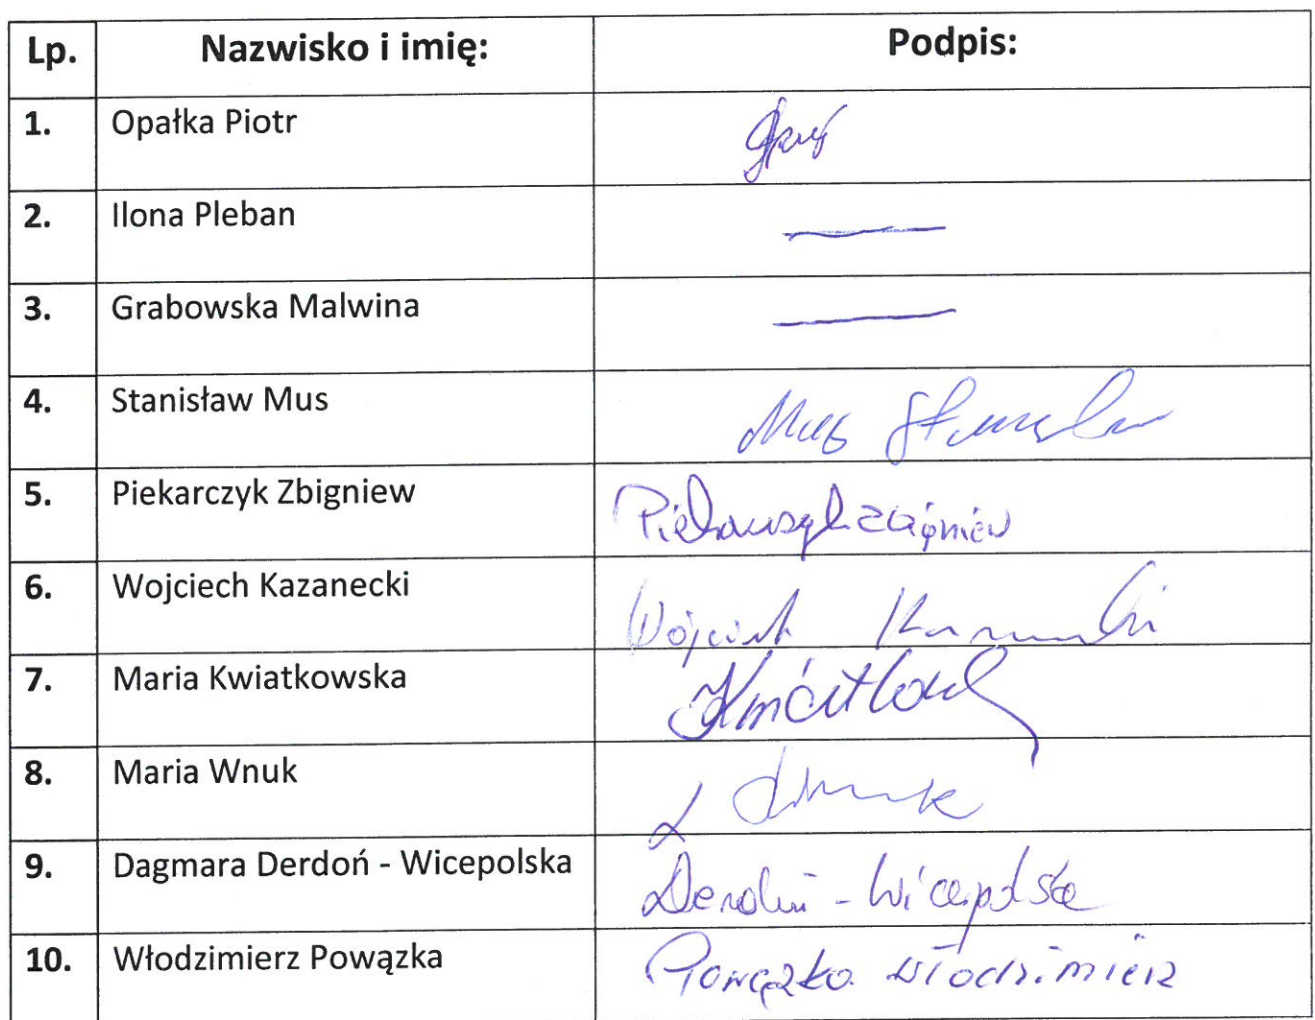 Lp. Nazwisko i imię: Podpis:
1. Opałka Piotr
2. Ilona Pleban —
3. Grabowska Malwina —
4. Stanisław Mus Mus Stanisław
5. Piekarczyk Zbigniew Piekarczyk Zbigniew
6. Wojciech Kazanecki Wojciech Kazanecki
7. Maria Kwiatkowska
8. Maria Wnuk Wnuk
9. Dagmara Derdoń - Wicepolska Derdoń - Wicepolska
10. Włodzimierz Powązka Powązka Włodzimierz